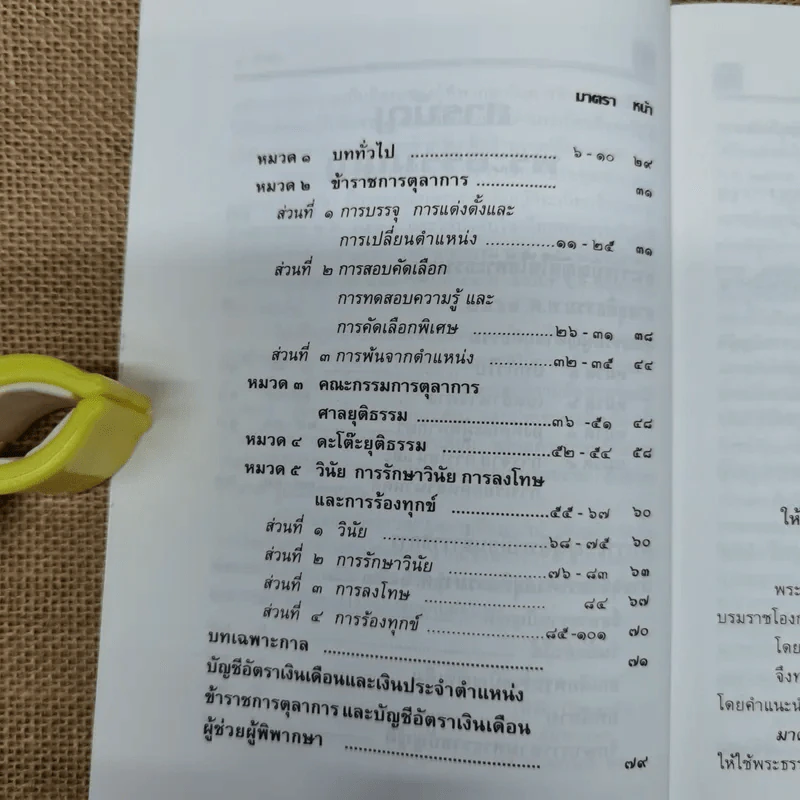 มาตรา หน้า
หมวด ๑ บททั่วไป ........................ ๖ - ๑๐ ๒๙
หมวด ๒ ข้าราชการตุลาการ ................ ๓๑
ส่วนที่ ๑ การบรรจุ การแต่งตั้งและ
การเปลี่ยนตำแหน่ง ..............๑๑ - ๒๕ ๓๑
ส่วนที่ ๒ การสอบคัดเลือก
การทดสอบความรู้ และ
การคัดเลือกพิเศษ ................๒๖ - ๓๑ ๓๘
ส่วนที่ ๓ การพ้นจากตำแหน่ง ..............๓๒ - ๓๕ ๔๔
หมวด ๓ คณะกรรมการตุลาการ
ศาลยุติธรรม ........................๓๖ -๕๑ ๔๘
หมวด ๔ ดะโต๊ะยุติธรรม ........................๕๒ - ๕๔ ๕๘
หมวด ๕ วินัย การรักษาวินัย การลงโทษ
และการร้องทุกข์ ....................๕๕ - ๖๗ ๖๐
ส่วนที่ ๑ วินัย ............................๖๘ - ๗๕ ๖๐
ส่วนที่ ๒ การรักษาวินัย ......................๗๖ - ๘๓ ๖๓
ส่วนที่ ๓ การลงโทษ ........................ ๘๔ ๖๗
ส่วนที่ ๔ การร้องทุกข์ ......................๘๕-๑๐๑ ๗๐
บทเฉพาะกาล ........................................ ๗๑
บัญชีอัตราเงินเดือนและเงินประจำตำแหน่ง
ข้าราชการตุลาการ และบัญชีอัตราเงินเดือน
ผู้ช่วยผู้พิพากษา .................................... ๗๙
ให้
พระ
บรมราชโอง
โดย
จึงท
โดยคำแนะนำ
มาต
ให้ใช้พระธรร